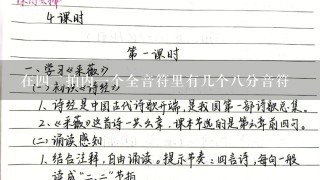 4课时
第一课时
一、学习《采薇》
在四、拍内一个全音符里有几个八分音符
(一)初识《诗经》
1、诗经是中国古代诗歌开端,是我国第一部诗歌总集。
2、《采薇》这首诗一共六章,课本节选的是第六章前四句。
(二)诵读感知
1、结合注释,自由诵读。提示节奏:四言诗,每句一般
读成“二、二”节拍